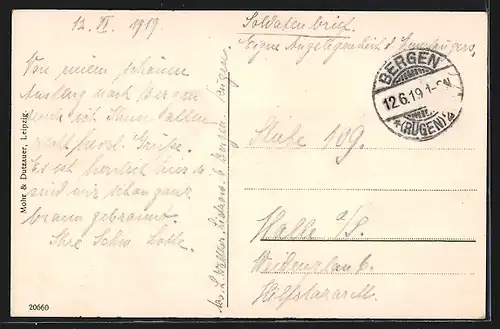 12. VI. 1919.
Von einem schönen
Ausflug nach Bergen
sende ich Ihnen allen
recht herzl. Grüße.
Es ist herrlich hier u.
sind wir schon ganz
braun gebrannt.
Ihre Schw. Lotte.
Mohr & Dutzauer, Leipzig.
20660
Soldatenbrief.
Eigne Angelegenheit d. Empfängers.
BERGEN
12.6.19. 1-2N
*(RÜGEN)a
Stube 109.
Halle a/S.
Weidenplan 6.
Hilfslazarett.
Bergen Rügen.